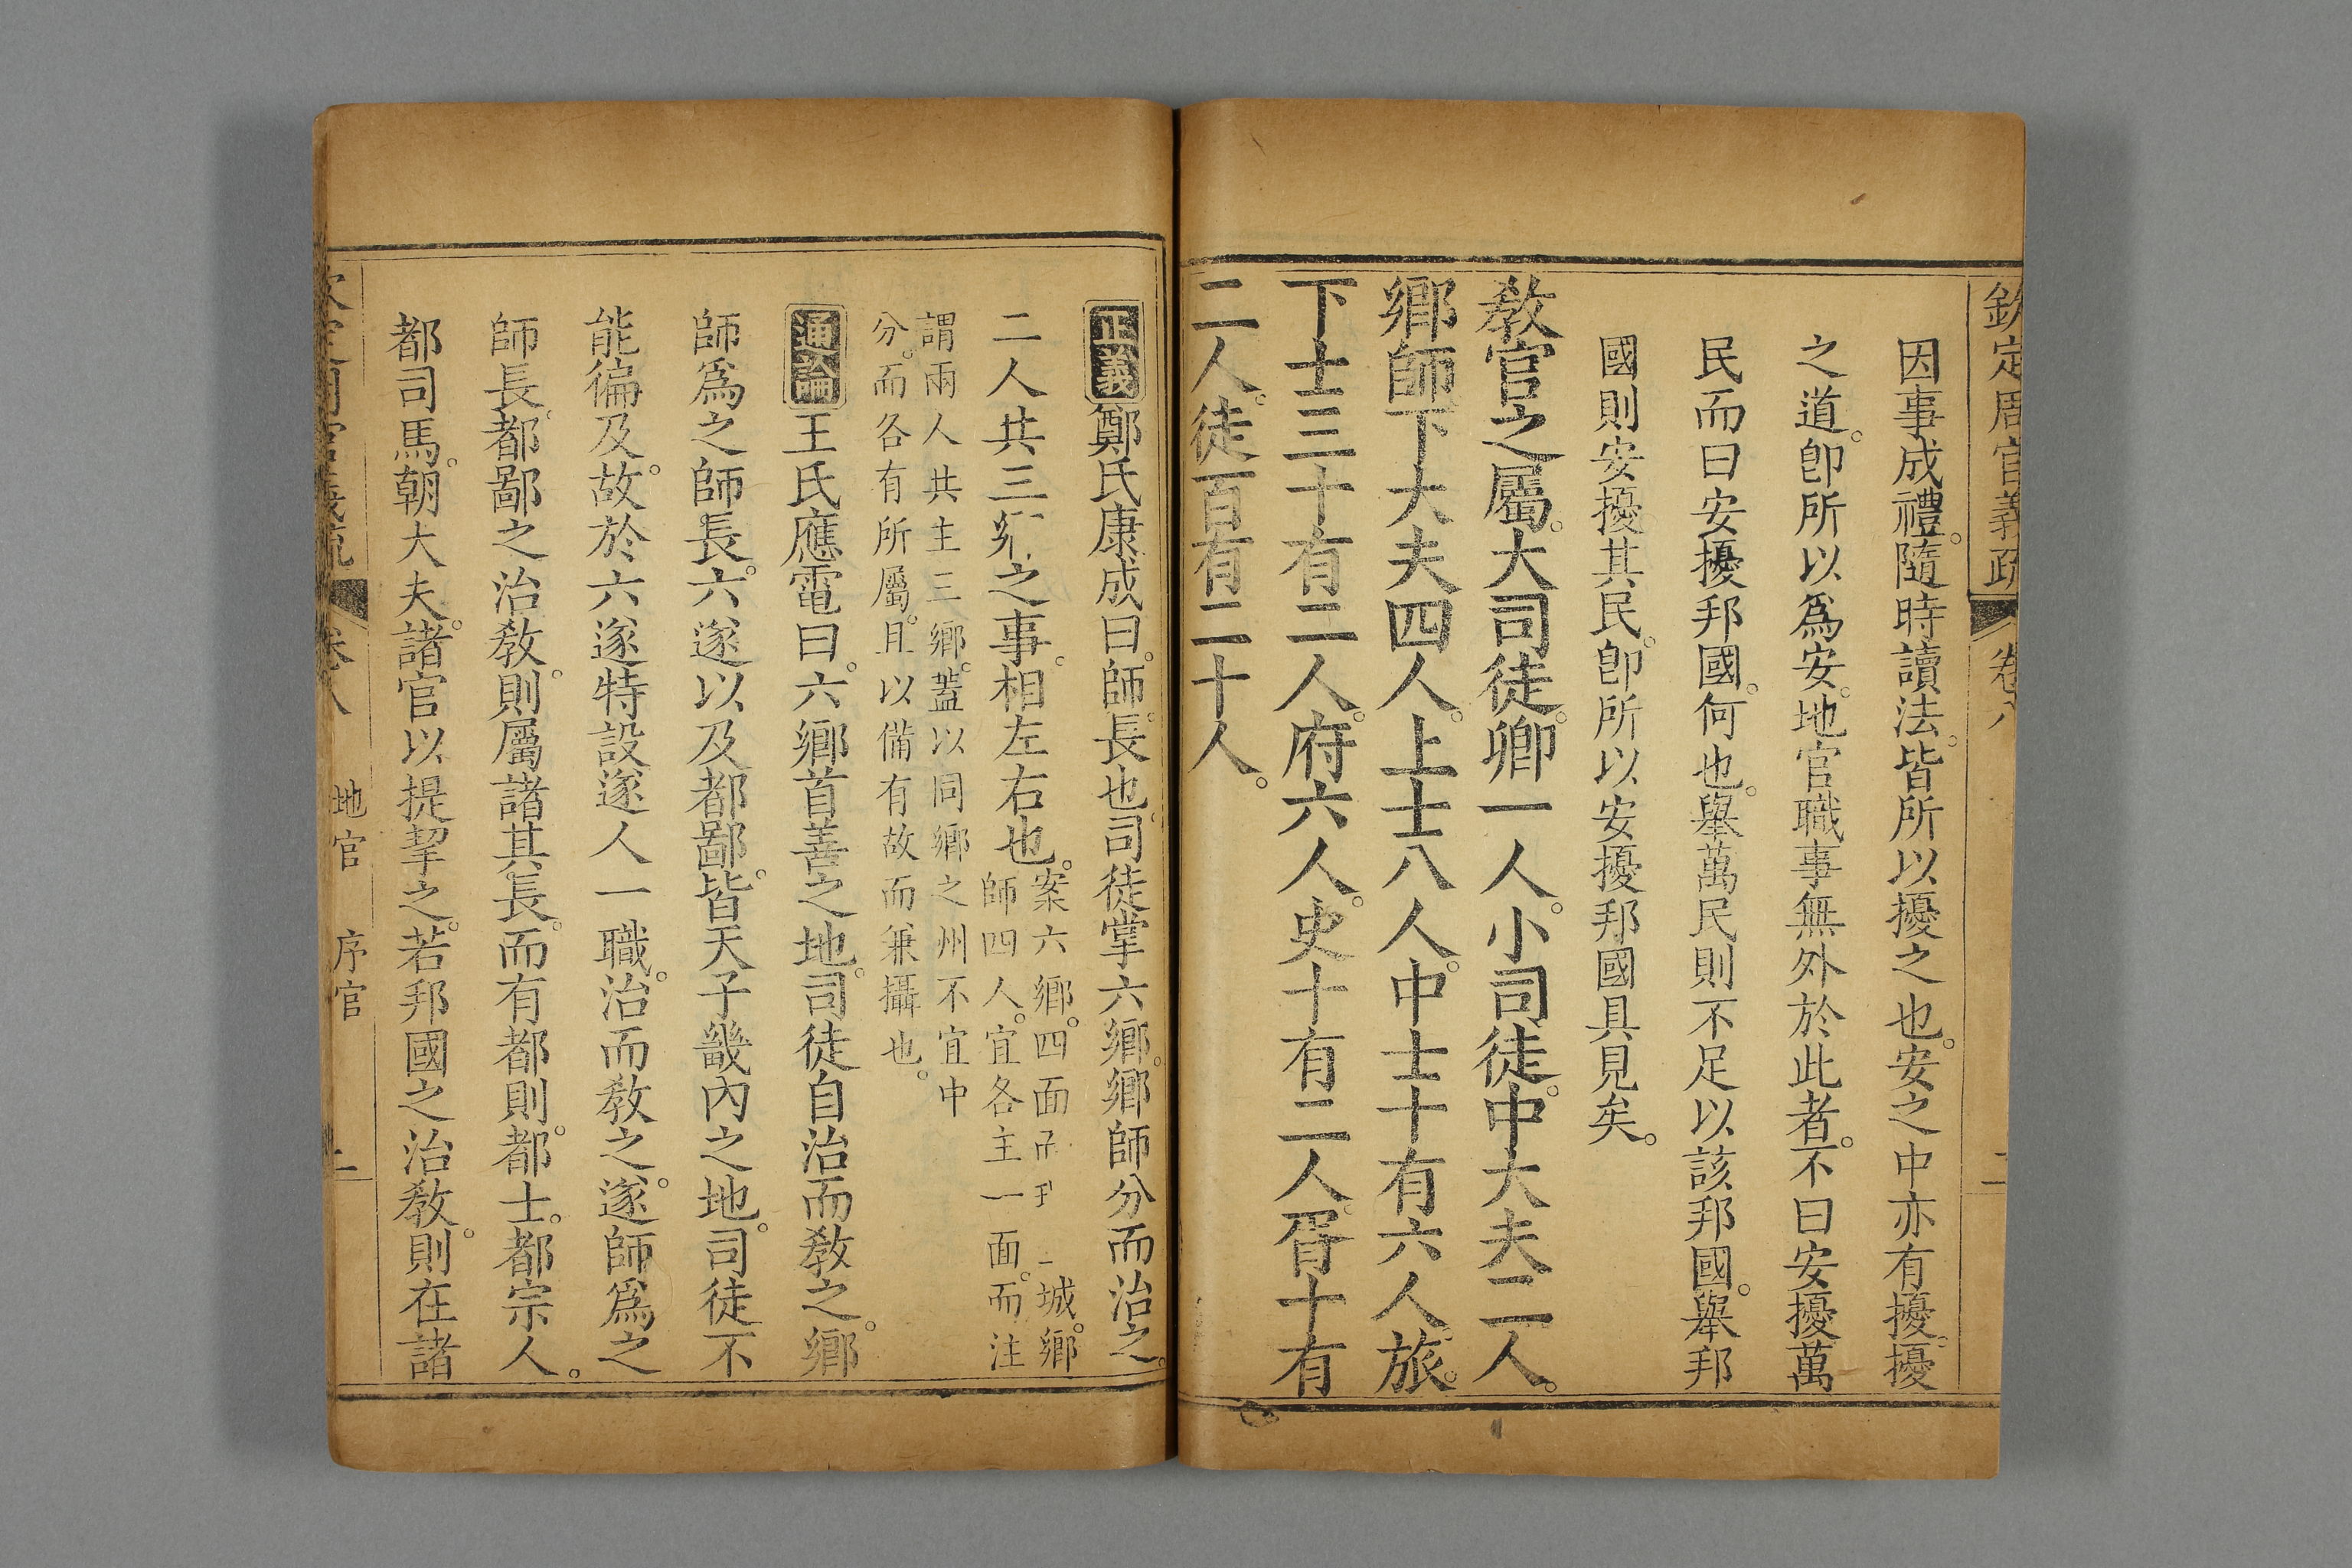 欽定周官義疏 卷八 二
因事成禮。隨時讀法。皆所以擾之也。安之中亦有擾。擾
之道。卽所以爲安。地官職事無外於此者。不曰安擾萬
民而曰安擾邦國。何也。舉萬民則不足以該邦國。舉邦
國則安擾其民。卽所以安擾邦國具見矣。
敎官之屬。大司徒。卿一人。小司徒。中大夫二人。
鄉師下大夫四人。上士八人。中士十有六人。旅。
下士三十有二人。府六人。史十有二人。胥十有
二人。徒百有二十人。
正義鄭氏康成曰。師。長也。司徒掌六鄉。鄉師分而治之。
二人共三之事。相左右也。
案六鄉。四面城。鄉
師四人。宜各主一面。而注
謂兩人共主三鄉。蓋以同鄉之州不宜中
分。而各有所屬。且以備有故而兼攝也。
通論王氏應電曰。六鄉首善之地。司徒自治而敎之。鄉
師爲之師長。六遂以及都鄙。皆天子畿內之地。司徒不
能徧及。故於六遂特設遂人一職。治而敎之。遂師爲之
師長。都鄙之治敎。則屬諸其長。而有都則。都士。都宗人。
都司馬。朝大夫。諸官以提挈之。若邦國之治敎。則在諸
卷八 地官 序官